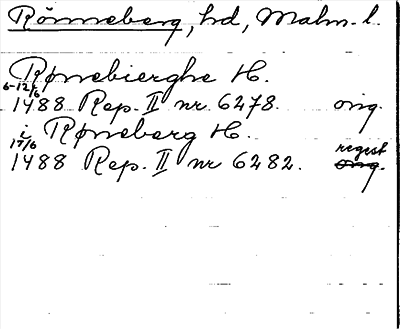 Rönneberg, hd, Malm. l.
Rønebierghe H.
6-12/6
1488 Rep. II nr. 6278. orig.
i Røneberg H.
17/6 regest
1488 Rep. II nr 6282. orig.